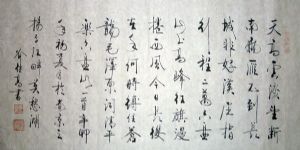 天高雲淡望斷
南飛雁不到長
城非好漢屈指
行程二萬六盤
山上高峰紅旗漫
捲西風今日長纓
在手何時縛住蒼
龍毛澤東詞清平
樂六盤山一首
揚子江畔莫愁湖